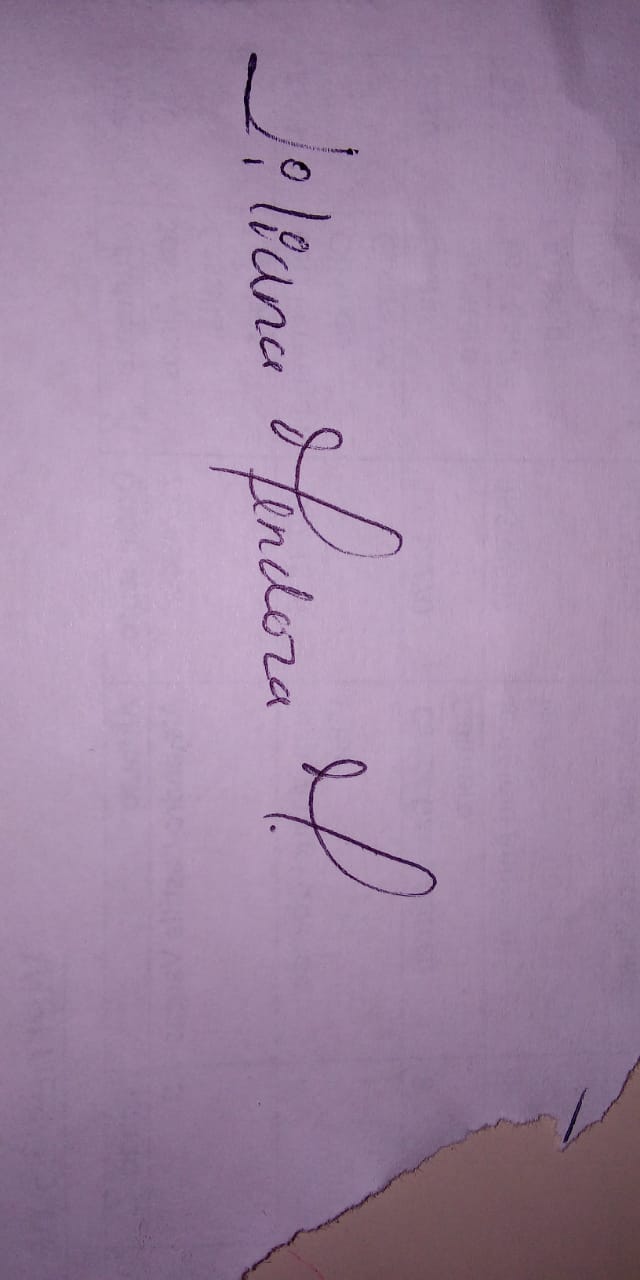 Liliana Mendoza M.